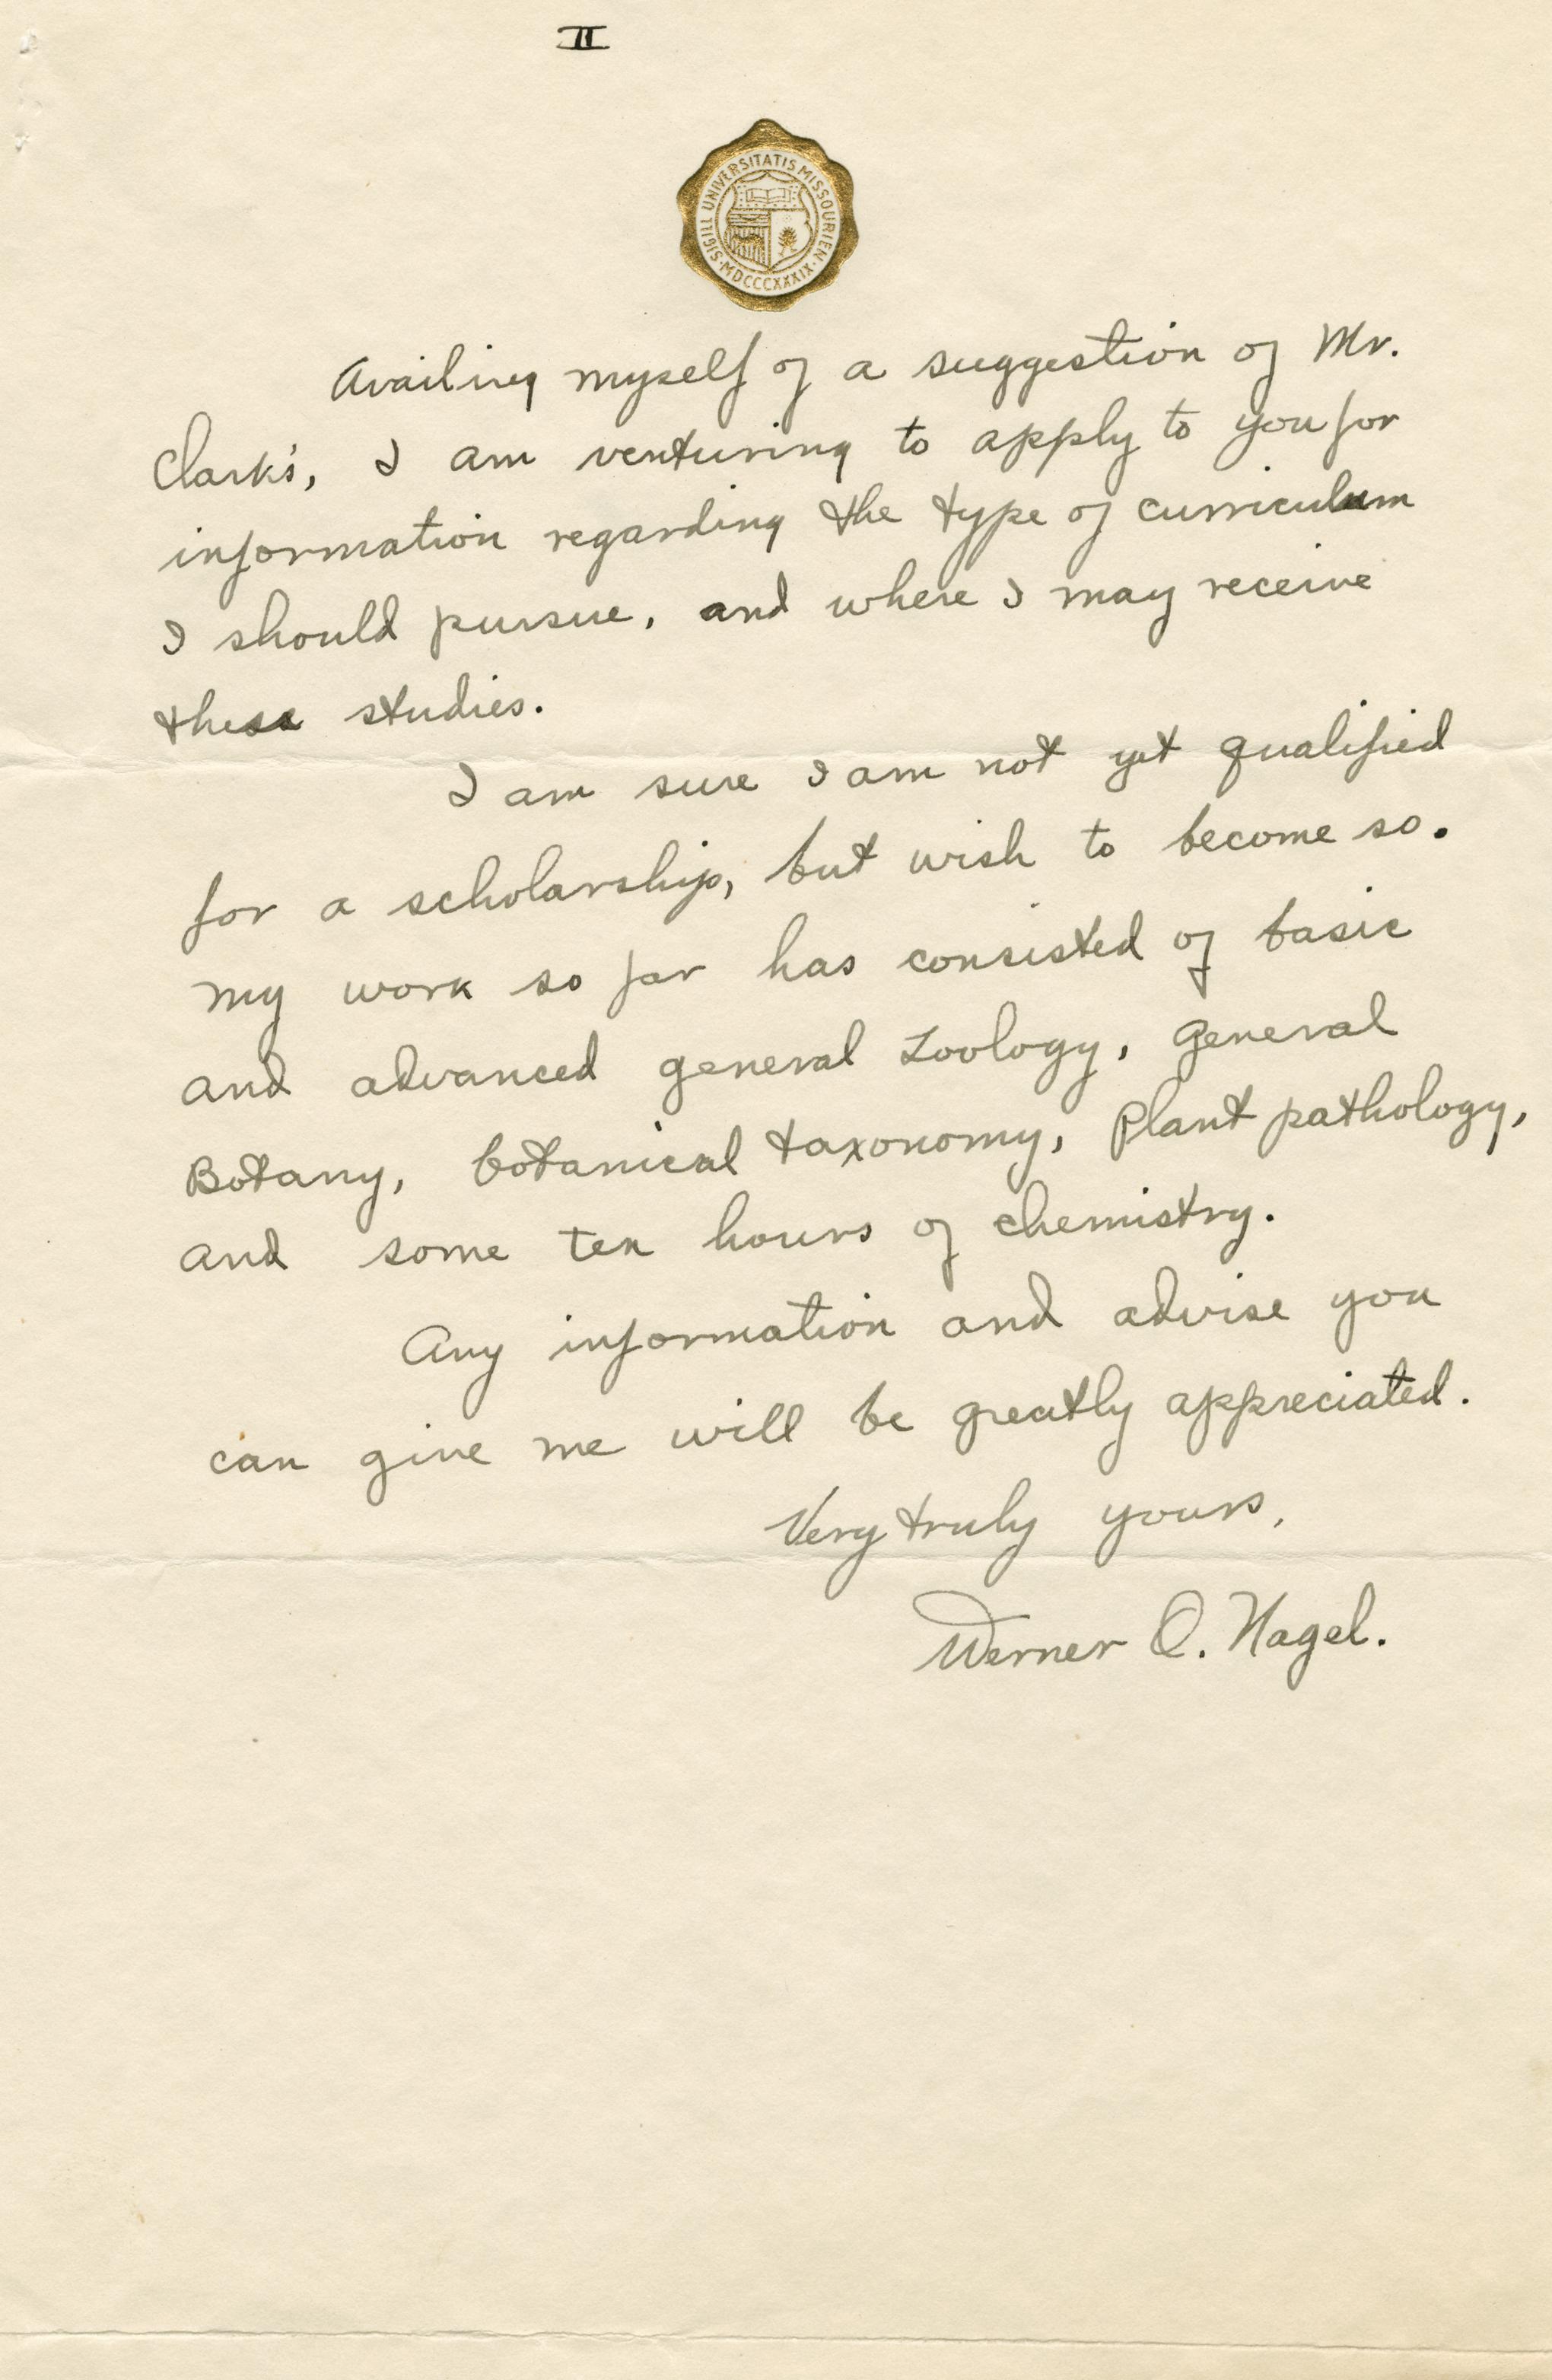 II
SIGILL UNIVERSITATIS MISSOURIEN · MDCCCXXXIX ·
Availing myself of a suggestion of Mr.
Clark's, I am venturing to apply to you for
information regarding the type of curriculum
I should pursue, and where I may receive
these studies.
I am sure I am not yet qualified
for a scholarship, but wish to become so.
My work so far has consisted of basic
and advanced general Zoology, General
Botany, botanical taxonomy, Plant pathology,
and some ten hours of chemistry.
Any information and advise you
can give me will be greatly appreciated.
Very truly yours,
Werner O. Nagel.